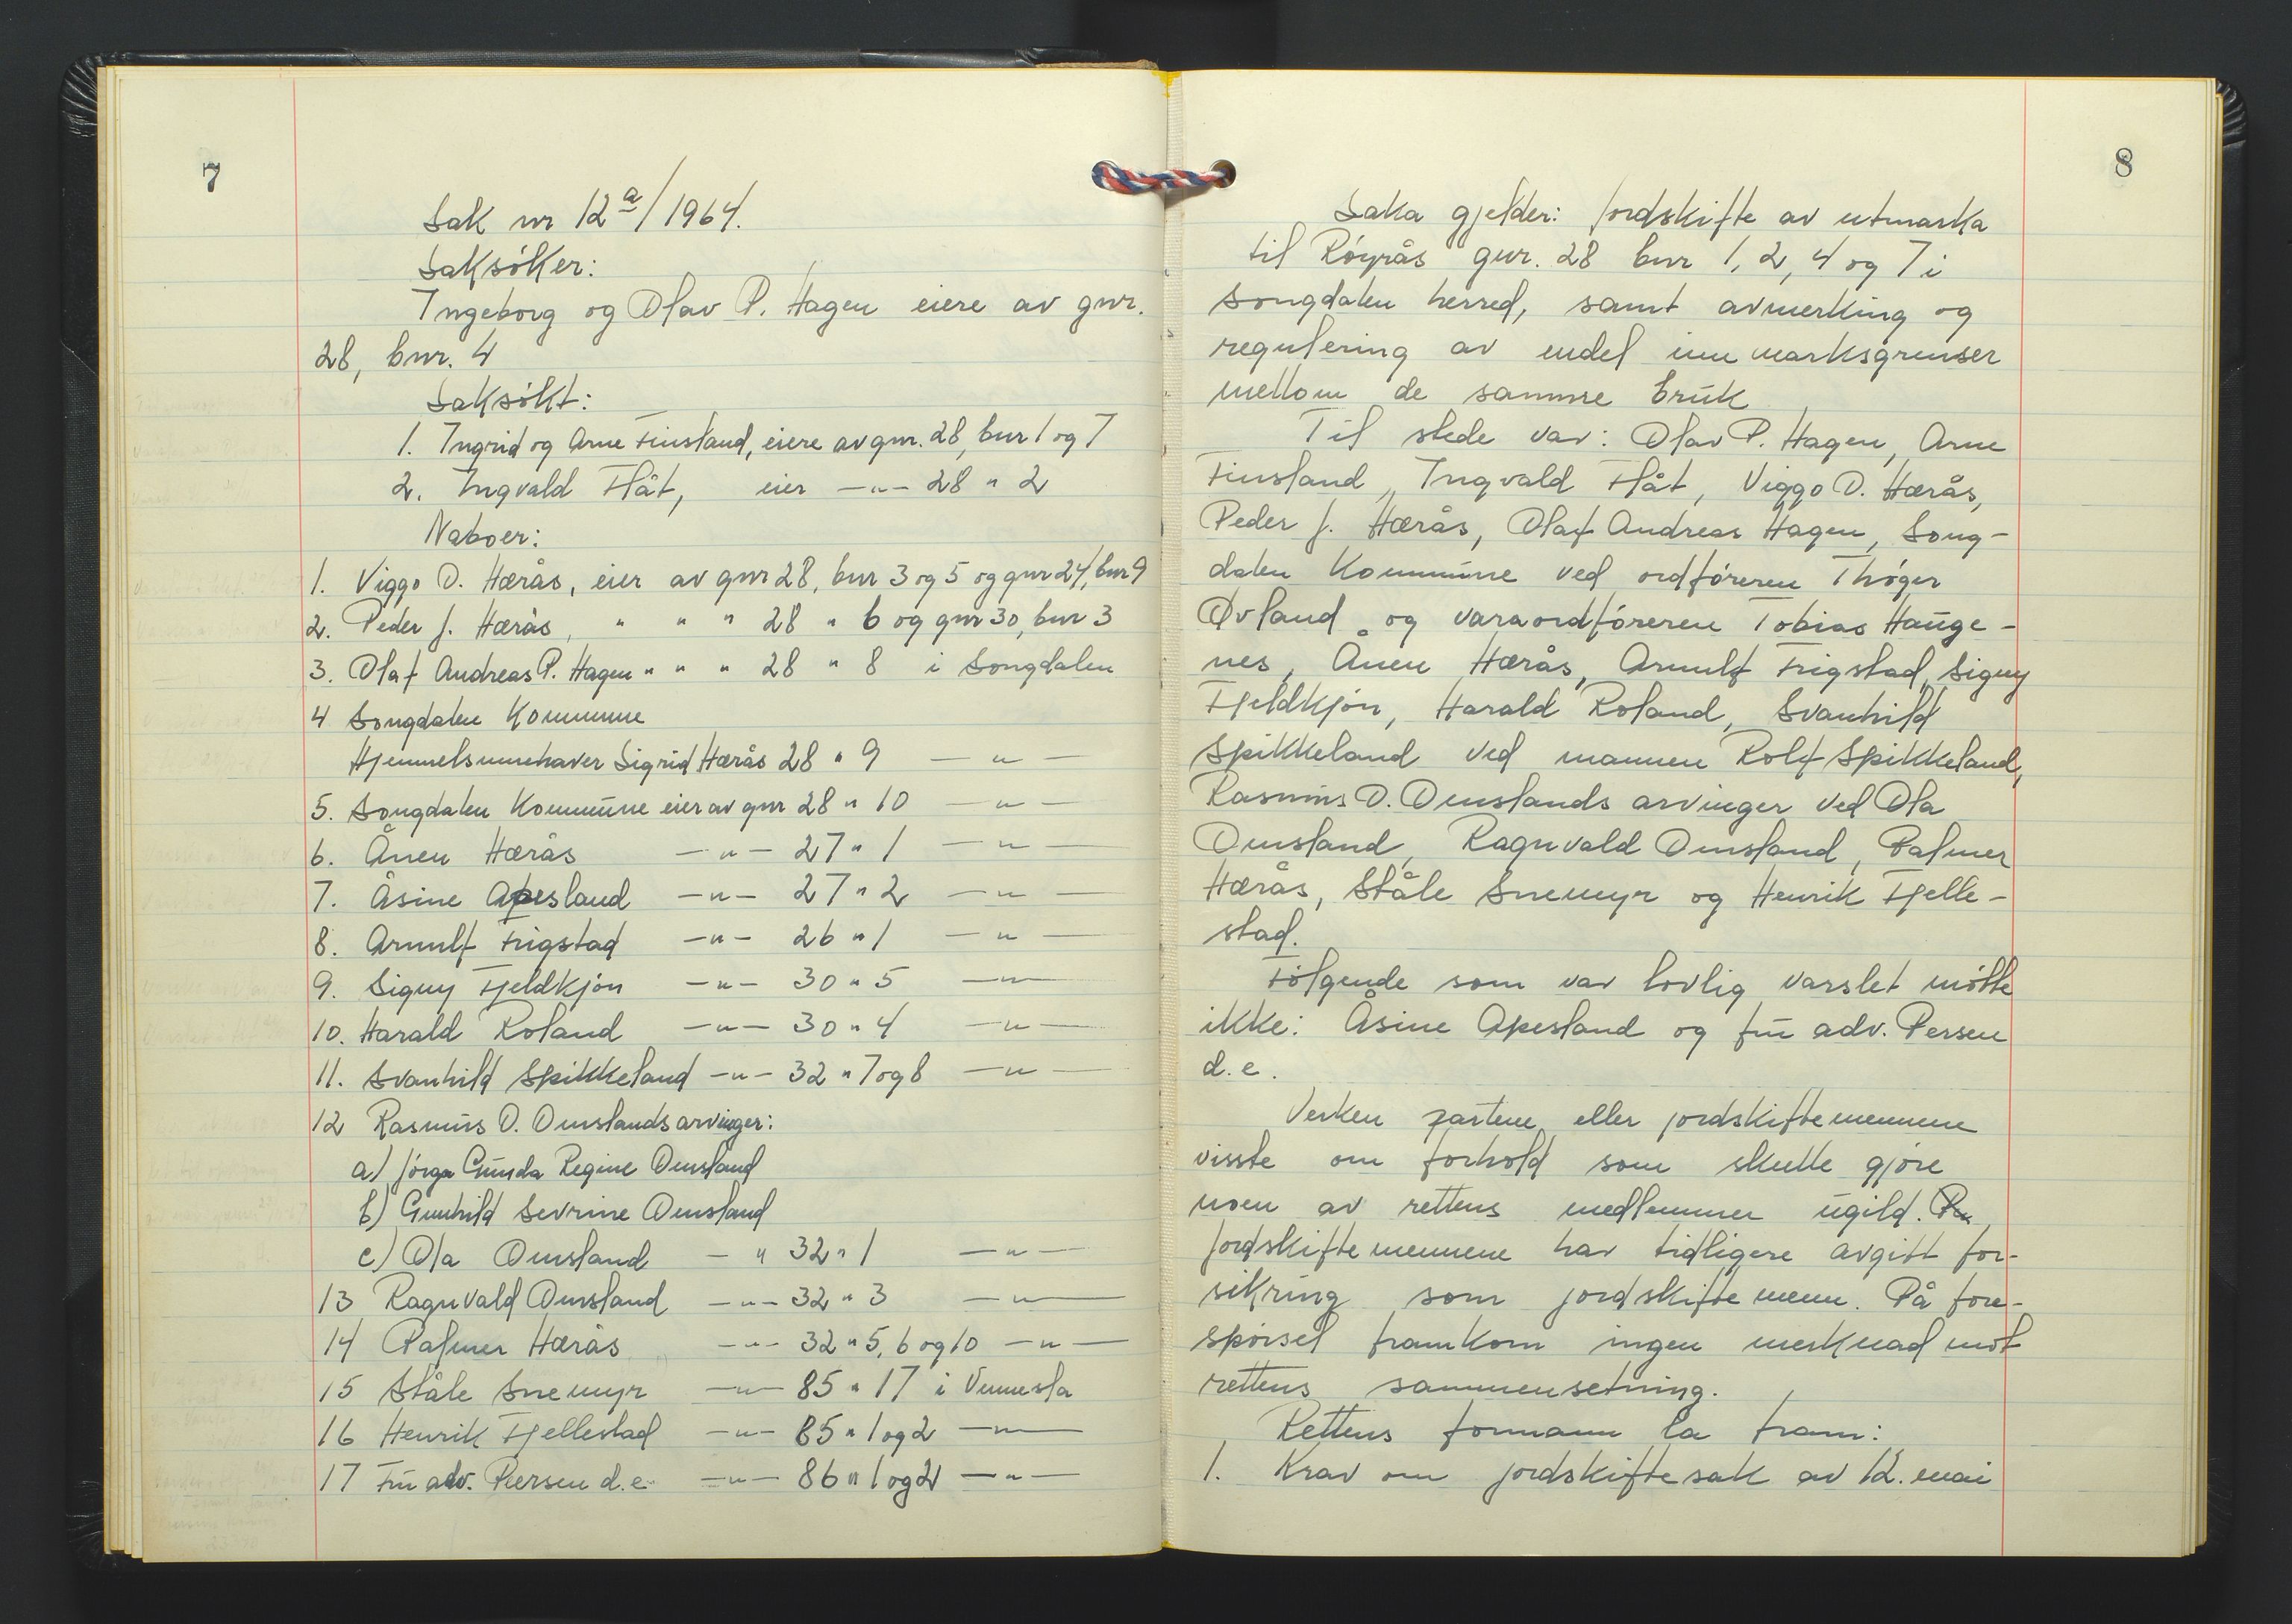 7
Sak nr 12a/1964.
Saksöker:
Ingeborg og Olav P. Hagen eiere av gnr.
28, bnr. 4
Saksökt:
1. Ingrid og Arne Finsland, eiere av gnr. 28, bnr 1 og 7
2. Ingvald Flåt, eier —"— 28 " 2
Naboer:
1. Viggo D. Hærås, eier av gnr 28, bnr 3 og 5 og gnr 24, bnr 9
2. Peder J. Hærås, " " " 28 " 6 og gnr 30, bnr 3
3. Olaf Andreas P. Hagen " " " 28 " 8 i Songdalen
4 Songdalen Kommune
Hjemmelsinnehaver Sigrid Hærås 28 " 9 —"—
5. Songdalen Kommune eier av gnr 28 " 10 —"—
6. Ånen Hærås —"— 27 " 1 —"—
7. Åsine Apesland —"— 27 " 2 —"—
8. Arnulf Frigstad —"— 26 " 1 —"—
9. Signy Fjeldkjön —"— 30 " 5 —"—
10. Harald Roland —"— 30 " 4 —"—
11. Svanhild Spikkeland —"— 32 " 7 og 8 —"—
12 Rasmus O. Omslands arvinger:
a) Jörga Gunda Regine Omsland
b) Gunhild Sevrine Omsland
c) Ola Omsland — " 32 " 1 —"—
13 Ragnvald Omsland —"— 32 " 3 —"—
14 Palmer Hærås —"— 32 " 5, 6 og 10 —"—
15 Ståle Snemyr —"— 85 " 17 i Vennesla
16 Henrik Fjellestad —"— 85 " 1 og 2 —"—
17 Fru adv. Persen d.e. —"— 86 " 1 og 2 —"—
8
Saka gjelder: Jordskifte av utmarka
til Röyrås gnr. 28 bnr 1, 2, 4 og 7 i
Songdalen herred, samt avmerking og
regulering av endel innmarksgrenser
mellom de samme bruk
Til stede var: Olav P. Hagen, Arne
Finsland, Ingvald Flåt, Viggo D. Hærås,
Peder J. Hærås, Olaf Andreas Hagen, Song-
dalen Kommune ved ordföreren Thöger
Övland og varaordföreren Tobias Hauge-
nes, Ånen Hærås, Arnulf Frigstad, Signy
Fjeldkjön, Harald Roland, Svanhild
Spikkeland ved mannen Rolf Spikkeland,
Rasmus O. Omslands arvinger ved Ola
Omsland, Ragnvald Omsland, Palmer
Hærås, Ståle Snemyr og Henrik Fjelle-
stad.
Fölgende som var lovlig varslet mötte
ikke: Åsine Apesland og fru adv. Persen
d.e.
Verken partene eller jordskiftemennene
visste om forhold som skulle gjöre
noen av rettens medlemmer ugild.
Jordskiftemennene har tidligere avgitt for-
sikring som jordskiftemenn. På fore-
spörsel framkom ingen merknad mot
rettens sammensetning.
Rettens formann la fram:
1. Krav om jordskiftesak av 12. mai